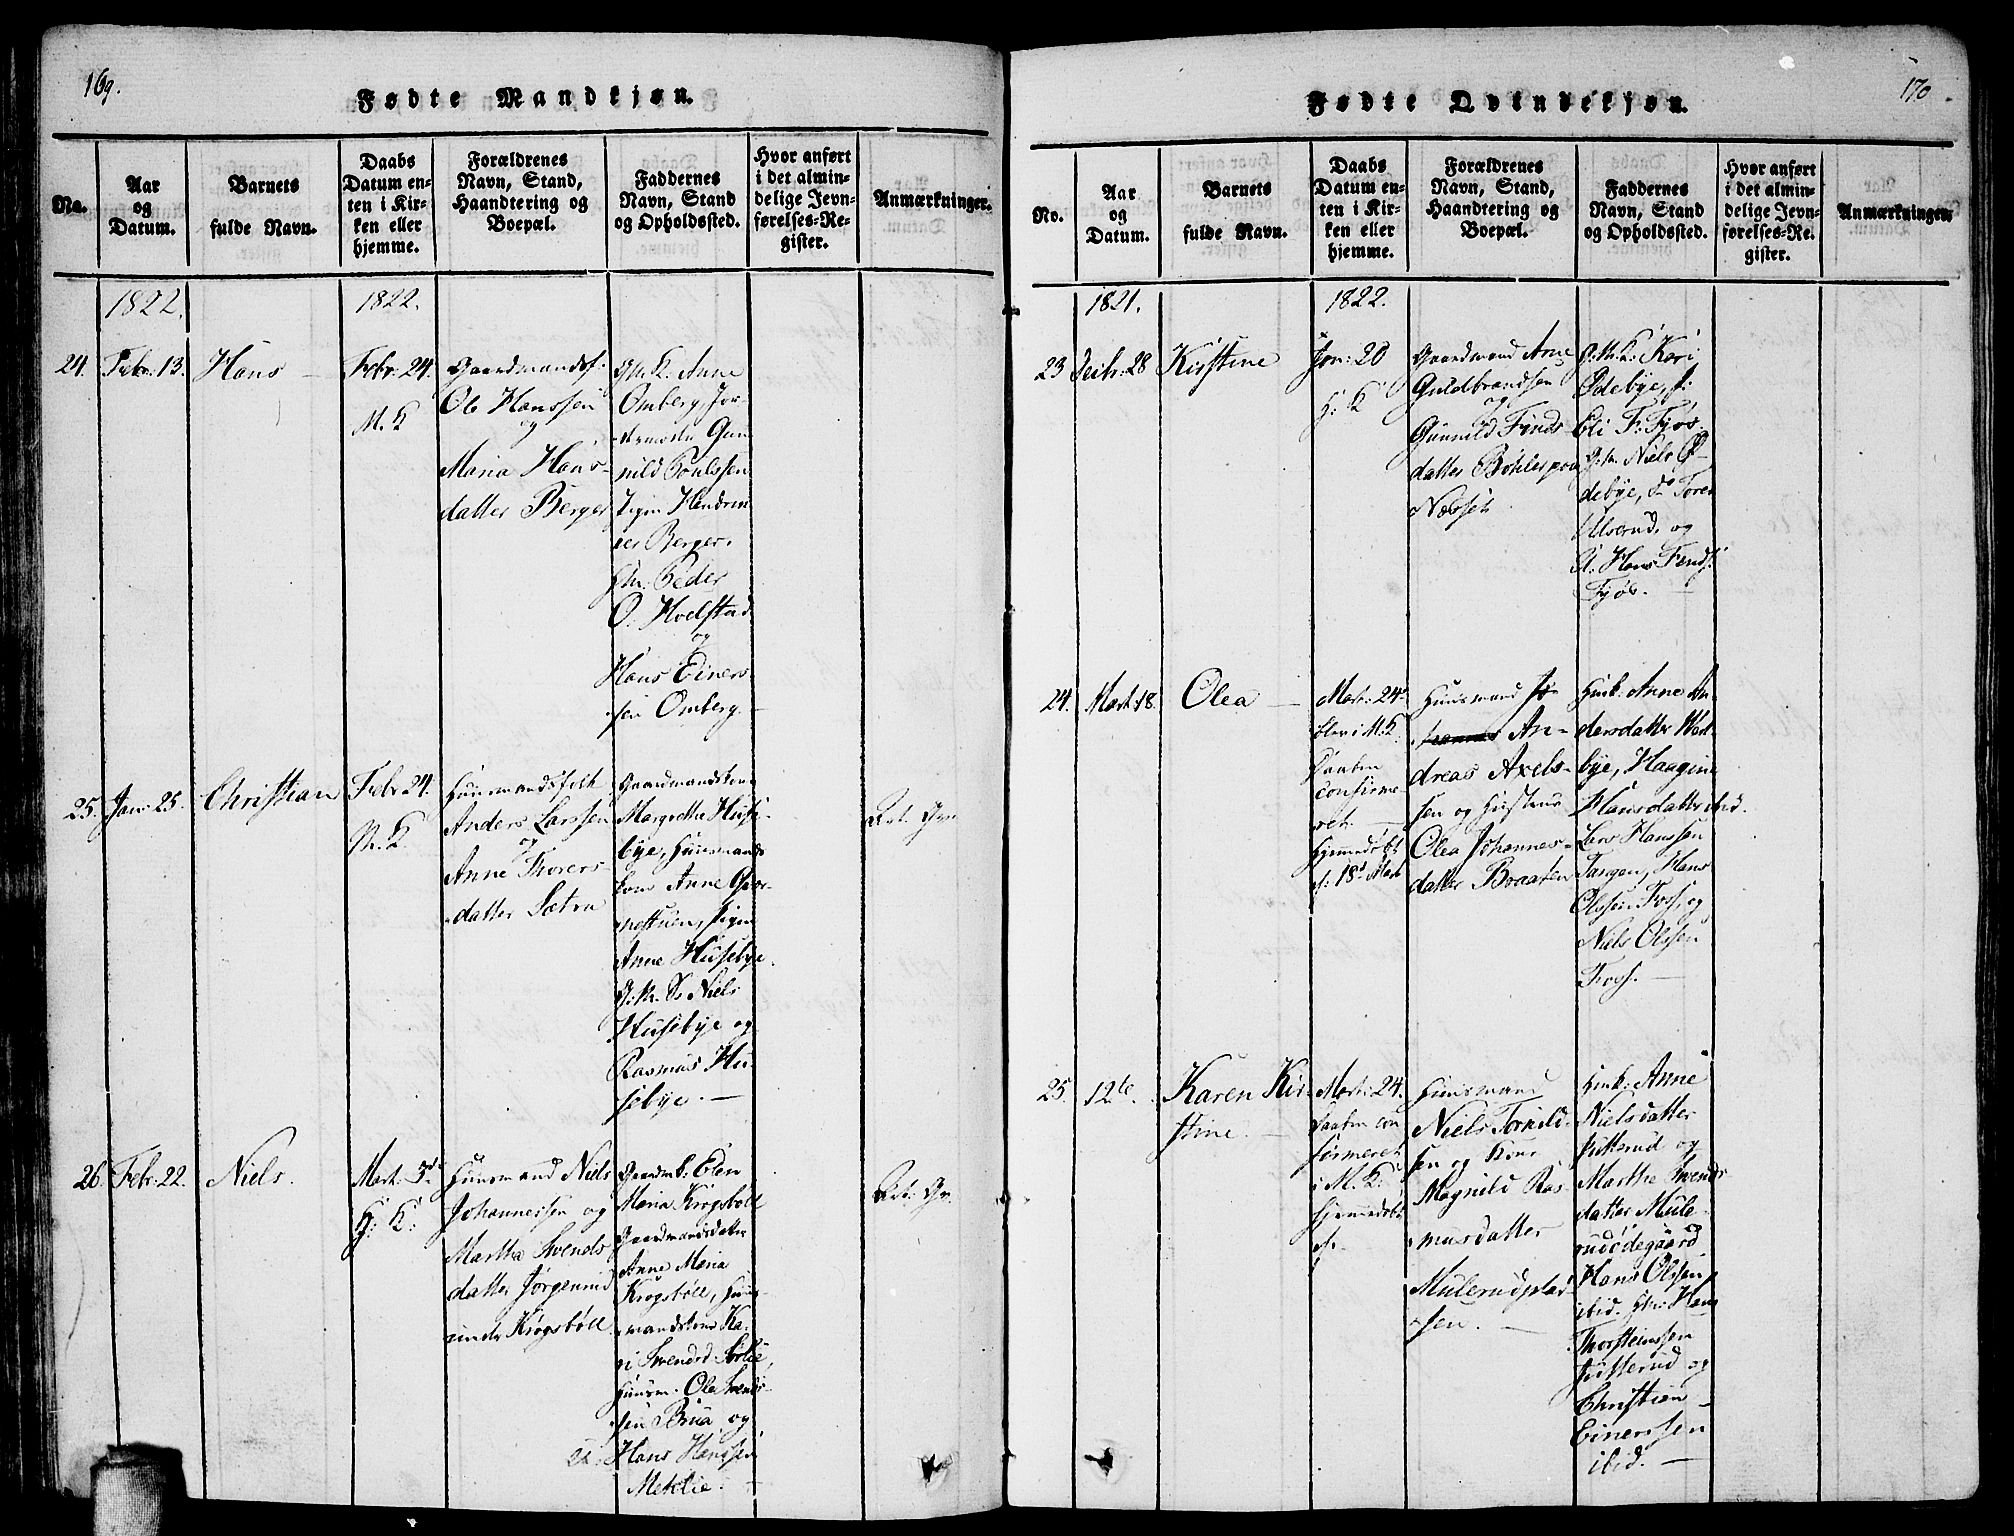 169.
Fødte Mandkjøn.
No.
Aar
og
Datum.
Barnets
fulde Navn.
Daabs
Datum en-
ten i Kir-
ken eller
hjemme.
Forældrenes
Navn, Stand,
Haandtering og
Boepæl.
Faddernes
Navn, Stand
og Opholdssted.
Hvor anført
i det almin-
delige Jevn-
førelses-Re-
gister.
Anmærkninger.
1822.
1822.
24.
Febr: 13.
Hans
Febr: 24.
M. K
Gaardmandsf:
Ole Hanssen
og
Maria Hans-
datter Berger
Gm. K. Anne
Omberg, Jor-
demoder Gun
nild Poulssen
Pigen Hendrin
Berger.
Gm: Peder
O. Hoelstad
og
Hans Einers
sen Omberg.
25.
Jan: 25.
Christian
Febr 24.
M. K.
Huusmandsfolk
Anders Larssen
og
Anne Thorers-
datter Sætra
Gaardmandskone
Margrethe Huse-
bye, Huusmands
kone Anne
Pigen
Anne Husebye.
G. M. S. Niels
Husebye og
Rasmus Hu-
sebye. —
26.
Febr: 22.
Niels.
Mart. 3d
H: K:
Huusmand Niels
Johannessen og
Martha Svends
datter Jørgenrud
under Krogsbøll
Gaardmk: Elen
Maria Krogsbøll
Gaardmandsdatter
Anne Maria
Krogsbøll, Huus-
mandskone Ka-
ri Svendsd. Sørlie,
Huusm. Ole Svends-
sen Brua og
Hans Hanssen
Meklie.
170
Fødte Qvindekjøn.
No.
Aar
og
Datum.
Barnets
fulde Navn.
Daabs
Datum en-
ten i Kir-
ken eller
hjemme.
Forældrenes
Navn, Stand,
Haandtering og
Boepæl.
Faddernes
Navn, Stand
og Opholdssted.
Hvor anført
i det almin-
delige Jevn-
førelses-Re-
gister.
Anmærkninger.
1821.
1822.
23
Decbr: 28
Kirstine
Jan: 20
H: K
Gaardmand Arne
Guldbrandsen
og
Gunnild Finds-
datter Bøhler paa
Næsset
G. M. K: Kari
Ødebye, P:
Eli F: Fjøs.
G. M. Niels Ø-
debye, do Tore
Ulserud, og
U: Hans Finds:
Fjøs.
24.
Mart: 18.
Olea
Mart: 24d
blev i M. K.
Daaben
confirme
ret. —
Hjemmedøbt
d: 18d Mart
Huusmand Jo-
An-
dreas Axels-
sen og Hustrue
Olea Johannes-
datter Braaten
Hmk: Anne An-
dersdatter West-
bye, Haagine
Hansdatter ibid.
Lars Hanssen
Tangen, Hans
Olssen Foss, og
Niels Olssen
Foss. —
25.
12te
Karen Kir-
stine. —
Mart: 24.
Daaben con
firmeret
i M. K:
Hjemmedøbt
d:
Huusmand
Niels Tornild-
sen og Kone
Magnild Ras-
musdatter
Mulerudplad-
sen. —
Hmk: Anne
Nielsdatter
Jutterud og
Marthe Svends
datter Mule-
rudødegaard
Hans Olssen
ibid. Hm: Hans
Thorsteinssen
Jutterud og
Christian
Einerssen
ibid. —